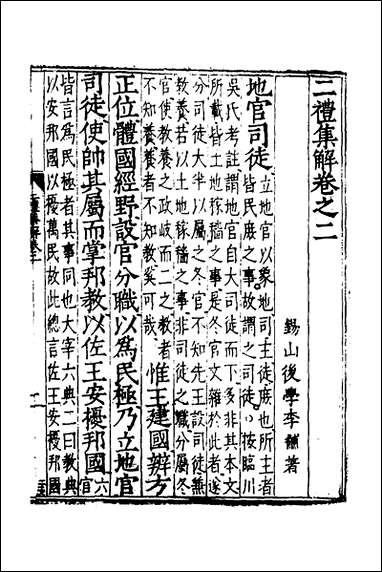 二禮集解卷之二
錫山後學李黼著
地官司徒 立地官以象地司主徒庶也所主者
皆民庶之事故謂之司徒○按臨川
吳氏考註謂地官自大司徒而下多非其本文
所載皆土地稼穡之事是冬官文雜於此者遂
分司徒大半以屬之冬官不知先王設司徒兼
教養若以土地稼穡之事非司徒之職分屬冬
官使教養之政岐而二之教者
不知養養者不知教奚可哉 惟王建國辨方
正位體國經野設官分職以為民極乃立地官
司徒使帥其屬而掌邦教以佐王安擾邦國 六官
皆言為民極者其事同也大宰六典二曰教典
以安邦國以擾萬民故此總言佐王安擾邦國